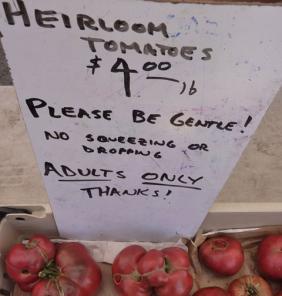 HEIRLOOM
TOMATOES
$4.00 lb
PLEASE BE GENTLE!
NO SQUEEZING OR
DROPPING
ADULTS ONLY
THANKS!